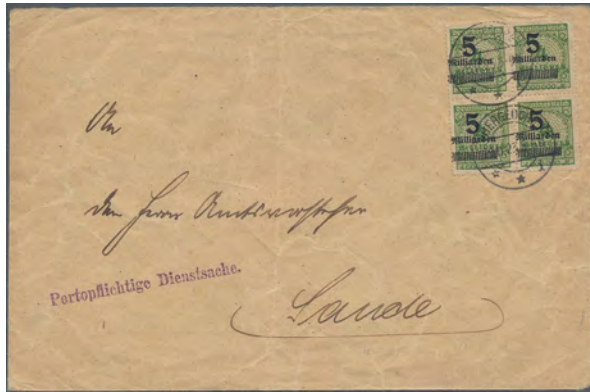 5
Milliarden
5
Milliarden
5
Milliarden
5
Milliarden
An
den Herrn Amtsvorsteher
Portopflichtige Dienstsache.
Sande